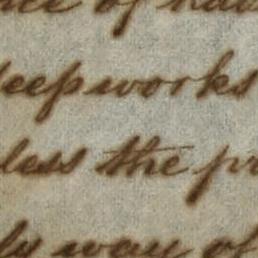 of
deep works
less the pr
ly way of